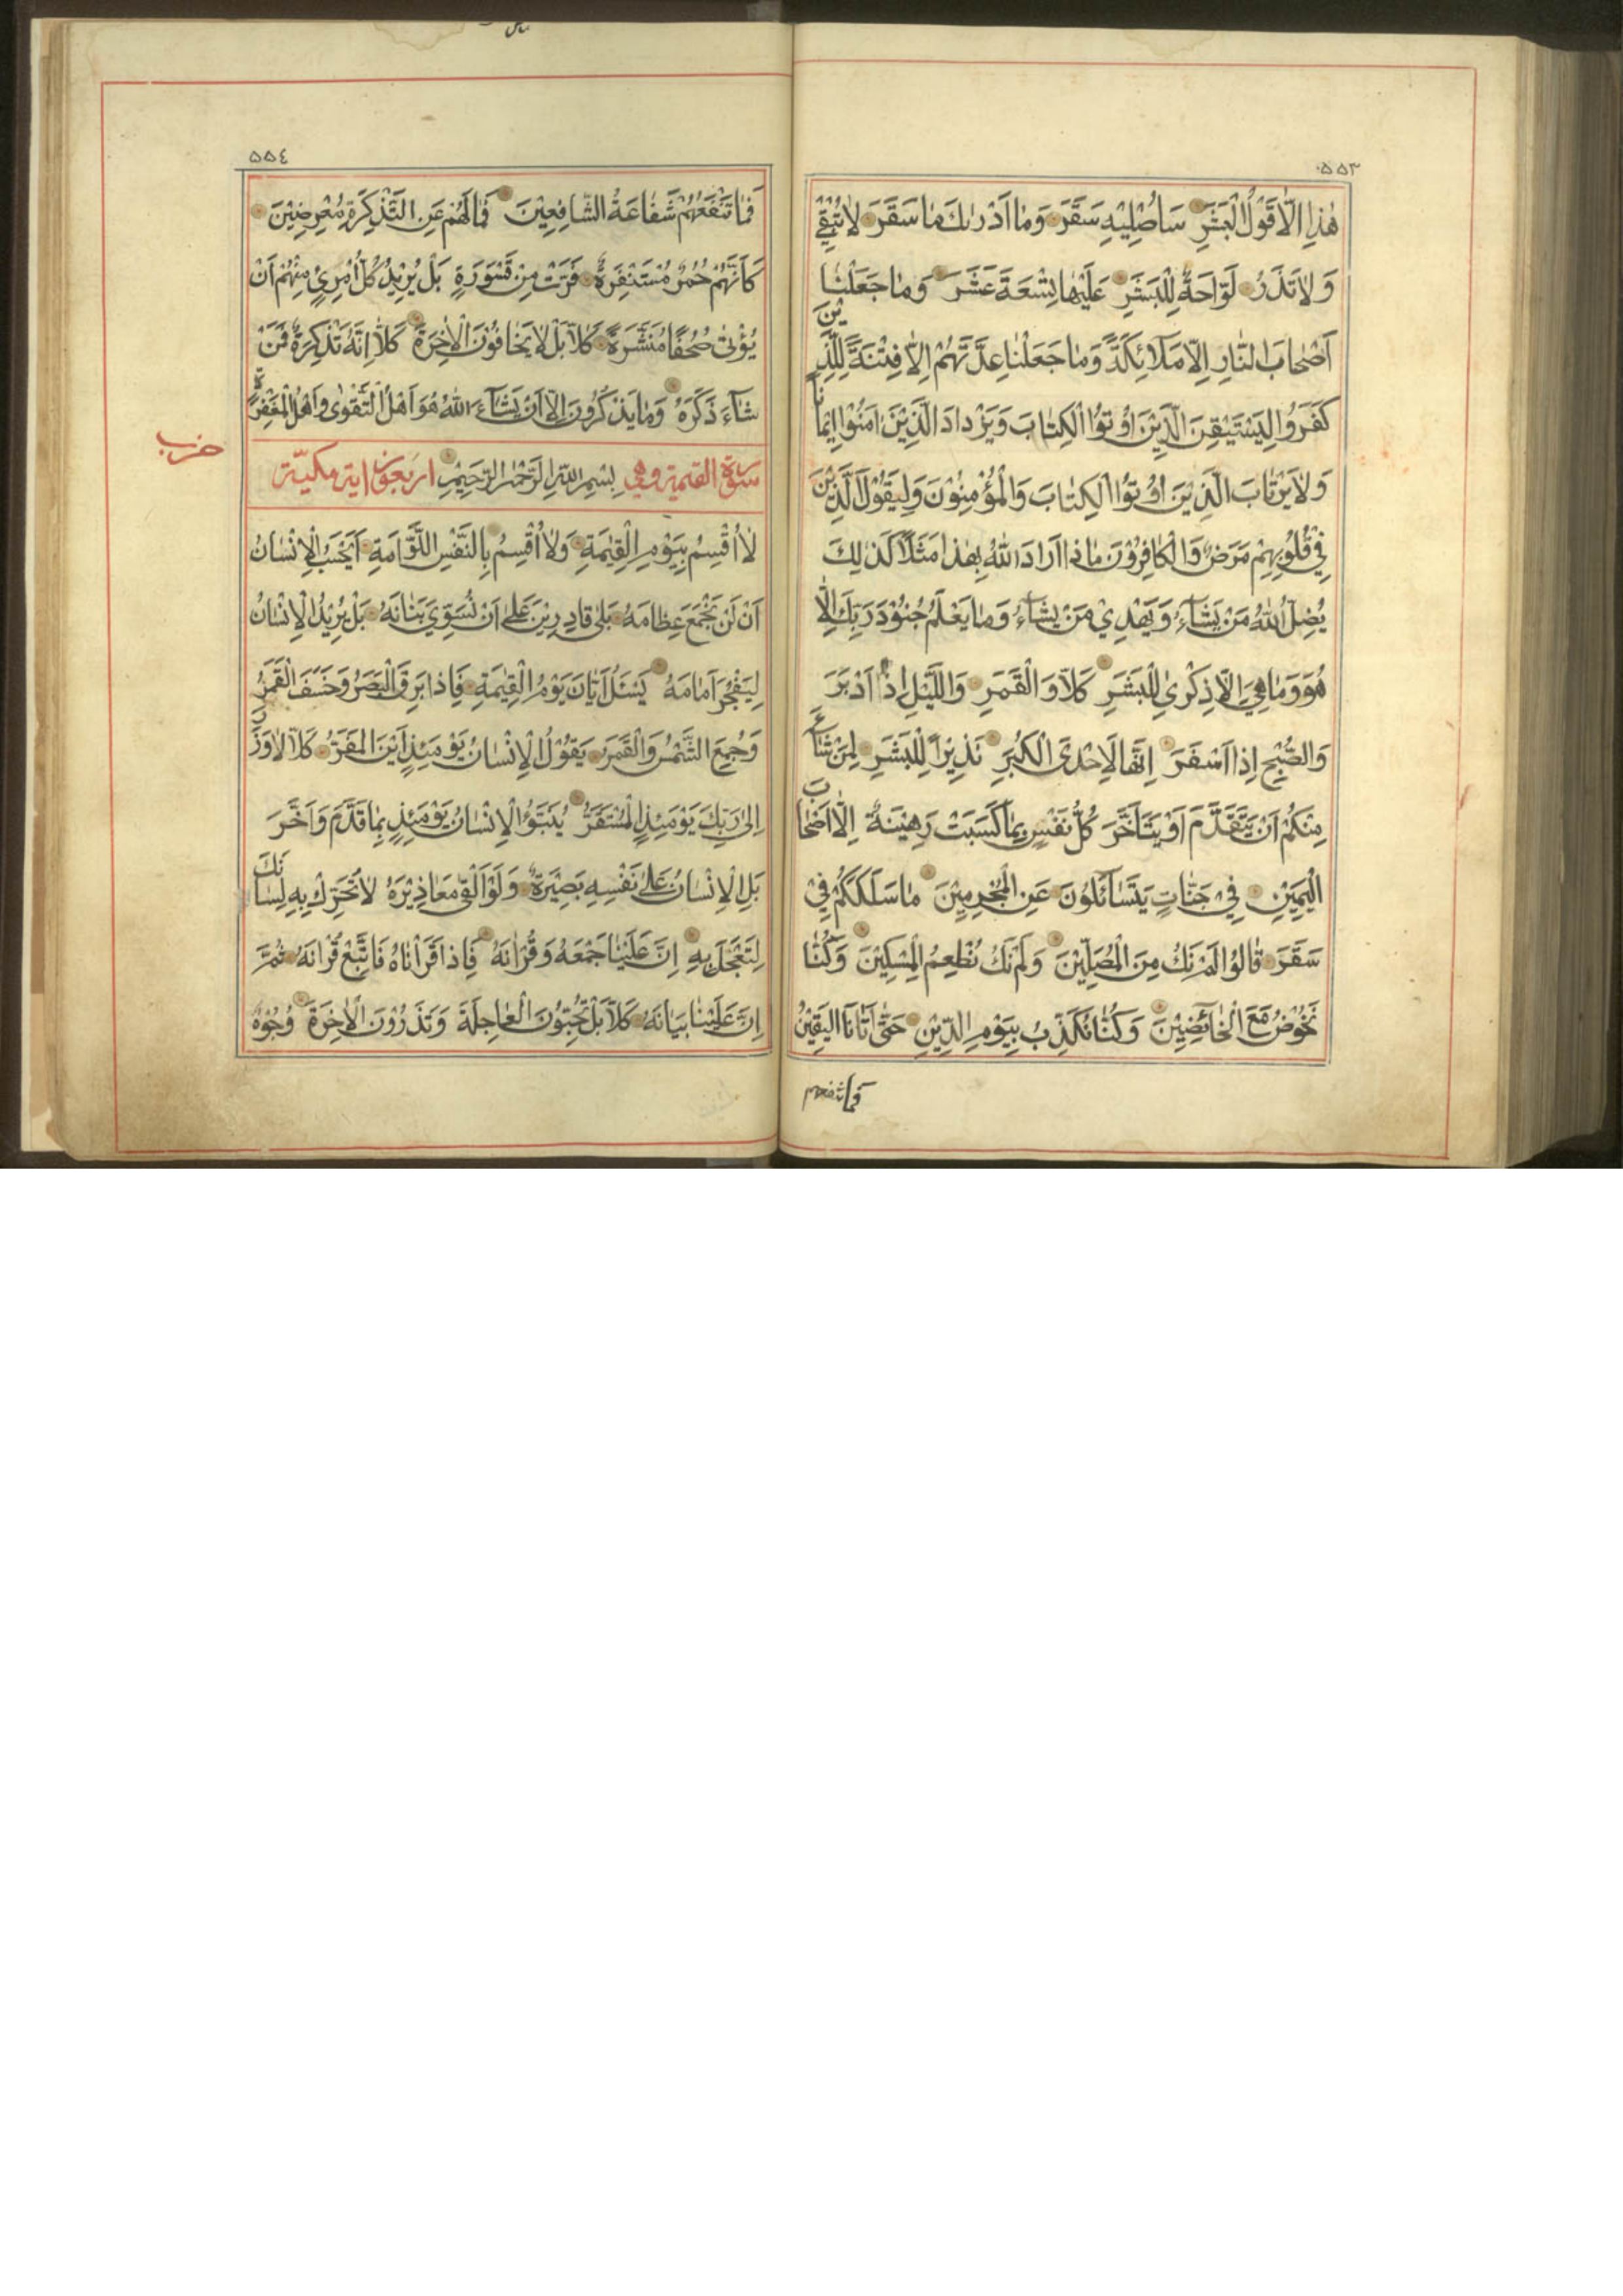 ۵۵۳
هٰذا اِلّا قَوْلُ الْبَشَرِ سَاُصْلِيْهِ سَقَرَ وَمٰا اَدْرٰىكَ مٰا سَقَرَ لٰا تُبْقِيْ
وَلٰا تَذَرُ لَوّٰاحَةٌ لِلْبَشَرِ عَلَيْهٰا تِسْعَةَ عَشَرَ وَمٰا جَعَلْنٰا
اَصْحٰابَ النّٰارِ اِلّٰا مَلٰائِكَةً وَمٰا جَعَلْنٰا عِدَّتَهُمْ اِلّٰا فِتْنَةً لِلَّذِيْنَ
كَفَرُوا لِيَسْتَيْقِنَ الَّذِيْنَ اُوْتُوا الْكِتٰابَ وَيَزْدادَ الَّذِيْنَ اٰمَنُوْا اِيْمٰانًا
وَلٰا يَرْتٰابَ الَّذِيْنَ اُوْتُوا الْكِتٰابَ وَالْمُؤْمِنُوْنَ وَلِيَقُوْلَ الَّذِيْنَ
فِيْ قُلُوْبِهِمْ مَرَضٌ وَالْكٰافِرُوْنَ مٰاذا اَرٰادَ اللّٰهُ بِهٰذا مَثَلًا كَذٰلِكَ
يُضِلُّ اللّٰهُ مَنْ يَشٰآءُ وَيَهْدِيْ مَنْ يَشٰآءُ وَمٰا يَعْلَمُ جُنُوْدَ رَبِّكَ اِلّٰا
هُوَ وَمٰا هِيَ اِلّٰا ذِكْرٰى لِلْبَشَرِ كَلّٰا وَالْقَمَرِ وَاللَّيْلِ اِذْ اَدْبَرَ
وَالصُّبْحِ اِذا اَسْفَرَ اِنَّهٰا لَاِحْدَى الْكُبَرِ نَذِيْرًا لِلْبَشَرِ لِمَنْ شٰآءَ
مِنْكُمْ اَنْ يَتَقَدَّمَ اَوْ يَتَاَخَّرَ كُلُّ نَفْسٍ بِمٰا كَسَبَتْ رَهِيْنَةٌ اِلّٰا اَصْحٰابَ
الْيَمِيْنِ فِيْ جَنّٰاتٍ يَتَسٰآئَلُوْنَ عَنِ الْمُجْرِمِيْنَ مٰا سَلَكَكُمْ فِيْ
سَقَرَ قٰالُوْا لَمْ نَكُ مِنَ الْمُصَلِّيْنَ وَلَمْ نَكُ نُطْعِمُ الْمِسْكِيْنَ وَكُنّٰا
نَخُوْضُ مَعَ الْخٰآئِضِيْنَ وَكُنّٰا نُكَذِّبُ بِيَوْمِ الدِّيْنِ حَتّٰى اَتٰانَا الْيَقِيْنُ
فَمٰا تنفعهم
۵۵٤
فَمٰا تَنْفَعُهُمْ شَفٰاعَةُ الشّٰافِعِيْنَ فَمٰا لَهُمْ عَنِ التَّذْكِرَةِ مُعْرِضِيْنَ
كَاَنَّهُمْ حُمُرٌ مُسْتَنْفِرَةٌ فَرَّتْ مِنْ قَسْوَرَةٍ بَلْ يُرِيْدُ كُلُّ امْرِئٍ مِنْهُمْ اَنْ
يُؤْتٰى صُحُفًا مُنَشَّرَةً كَلّٰا بَلْ لٰا يَخٰافُوْنَ الْاٰخِرَةَ كَلّٰا اِنَّهُ تَذْكِرَةٌ فَمَنْ
شٰآءَ ذَكَرَهُ وَمٰا يَذْكُرُوْنَ اِلّٰا اَنْ يَشٰآءَ اللّٰهُ هُوَ اَهْلُ التَّقْوٰى وَاَهْلُ الْمَغْفِرَةِ
حزب
سورة القيمة وهي بِسْمِ اللّٰهِ الرَّحْمٰنِ الرَّحِيْمِ اربعون اية مكيّة
لٰا اُقْسِمُ بِيَوْمِ الْقِيٰمَةِ وَلٰا اُقْسِمُ بِالنَّفْسِ اللَّوّٰامَةِ اَيَحْسَبُ الْاِنْسٰانُ
اَنْ لَنْ نَجْمَعَ عِظٰامَهُ بَلٰى قٰادِرِيْنَ عَلٰى اَنْ نُسَوِّيَ بَنٰانَهُ بَلْ يُرِيْدُ الْاِنْسٰانُ
لِيَفْجُرَ اَمٰامَهُ يَسْئَلُ اَيّٰانَ يَوْمُ الْقِيٰمَةِ فَاِذا بَرِقَ الْبَصَرُ وَخَسَفَ الْقَمَرُ
وَجُمِعَ الشَّمْسُ وَالْقَمَرُ يَقُوْلُ الْاِنْسٰانُ يَوْمَئِذٍ اَيْنَ الْمَفَرُّ كَلّٰا لٰا وَزَرَ
اِلٰى رَبِّكَ يَوْمَئِذٍ الْمُسْتَقَرُّ يُنَبَّؤُ الْاِنْسٰانُ يَوْمَئِذٍ بِمٰا قَدَّمَ وَاَخَّرَ
بَلِ الْاِنْسٰانُ عَلٰى نَفْسِهِ بَصِيْرَةٌ وَلَوْ اَلْقٰى مَعٰاذِيْرَهُ لٰا تُحَرِّكْ بِهِ لِسٰانَكَ
لِتَعْجَلَ بِهِ اِنَّ عَلَيْنٰا جَمْعَهُ وَقُرْاٰنَهُ فَاِذا قَرَأْنٰاهُ فَاتَّبِعْ قُرْاٰنَهُ ثُمَّ
اِنَّ عَلَيْنٰا بَيٰانَهُ كَلّٰا بَلْ تُحِبُّوْنَ الْعٰاجِلَةَ وَتَذَرُوْنَ الْاٰخِرَةَ وُجُوْهٌ